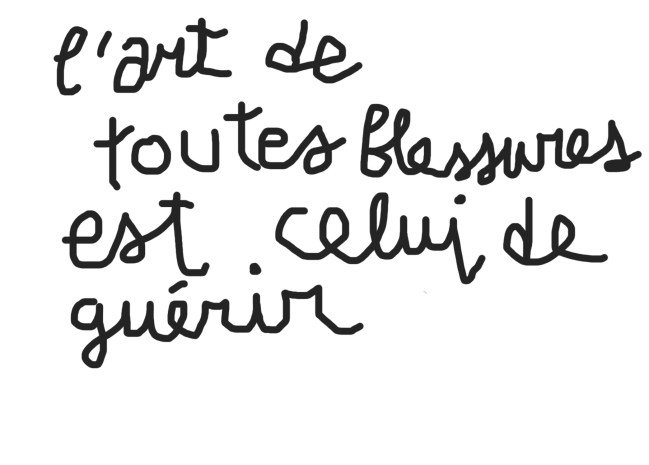 l'art de
toutes blessures
est celui de
guérir